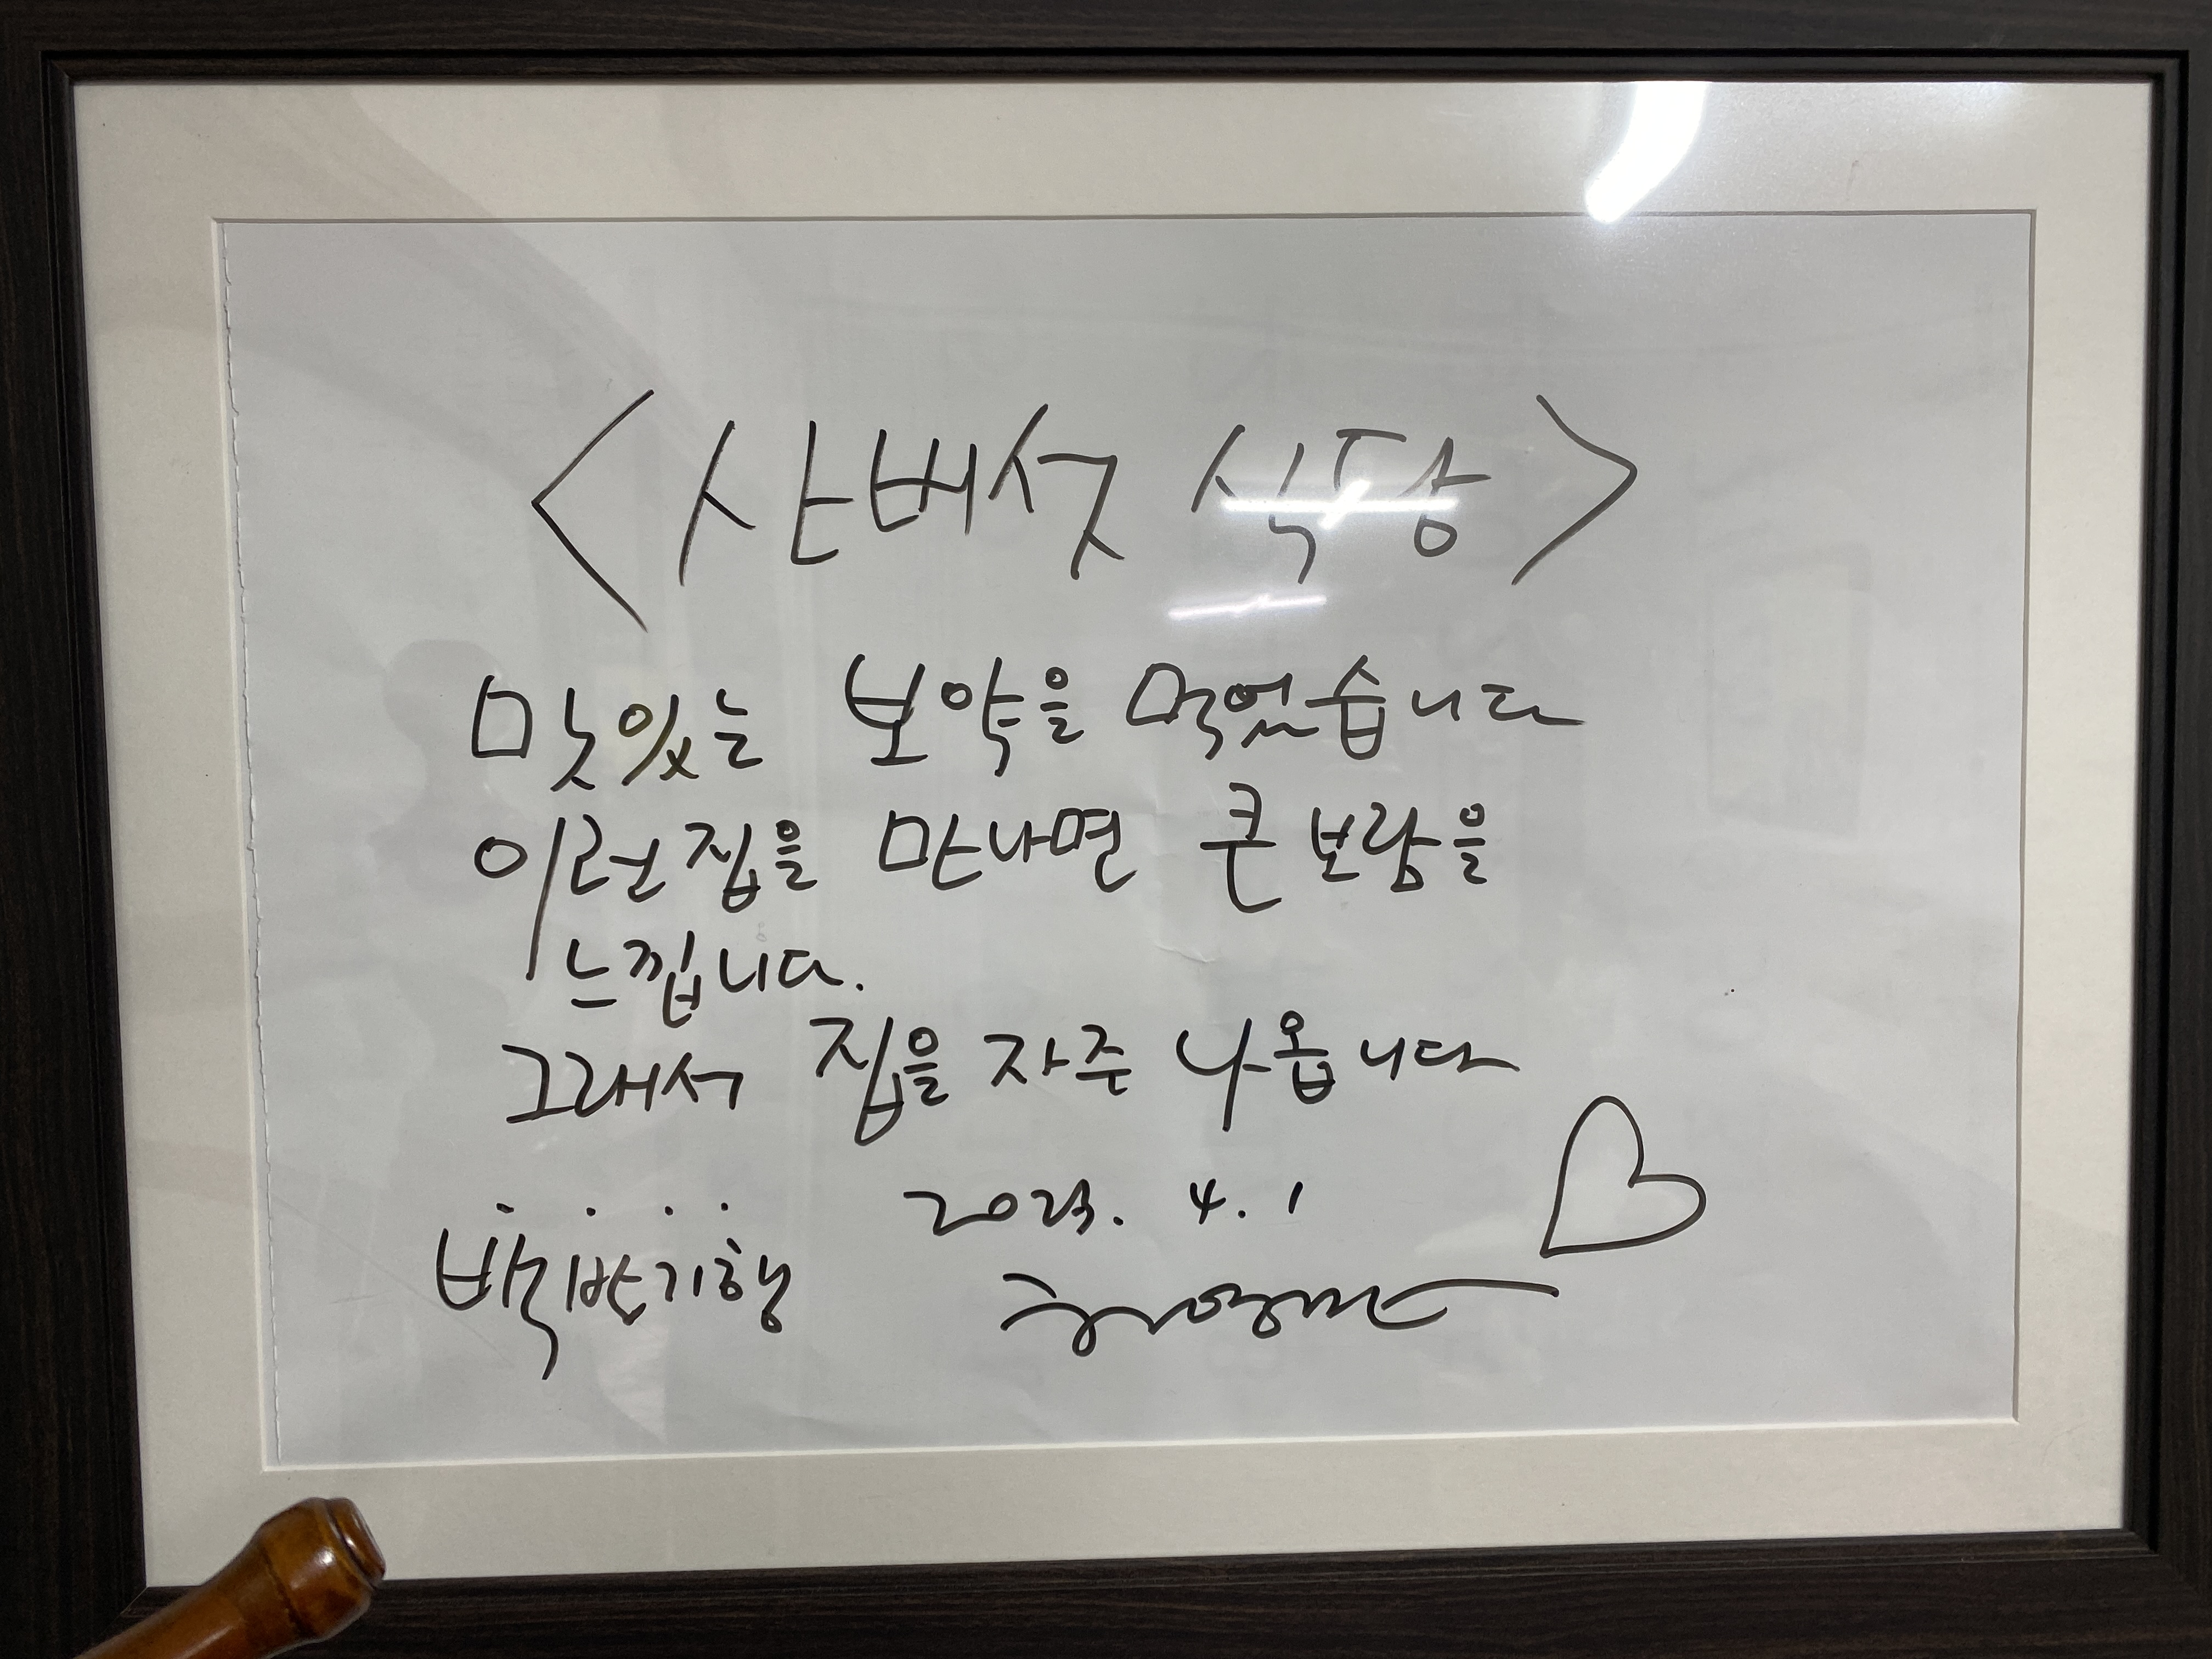 <산버섯 식당>
맛있는 보약을 먹었습니다
이런집을 만나면 큰 보람을
느낍니다.
그래서 집을 자주 나옵니다
2023. 4. 1
백반기행